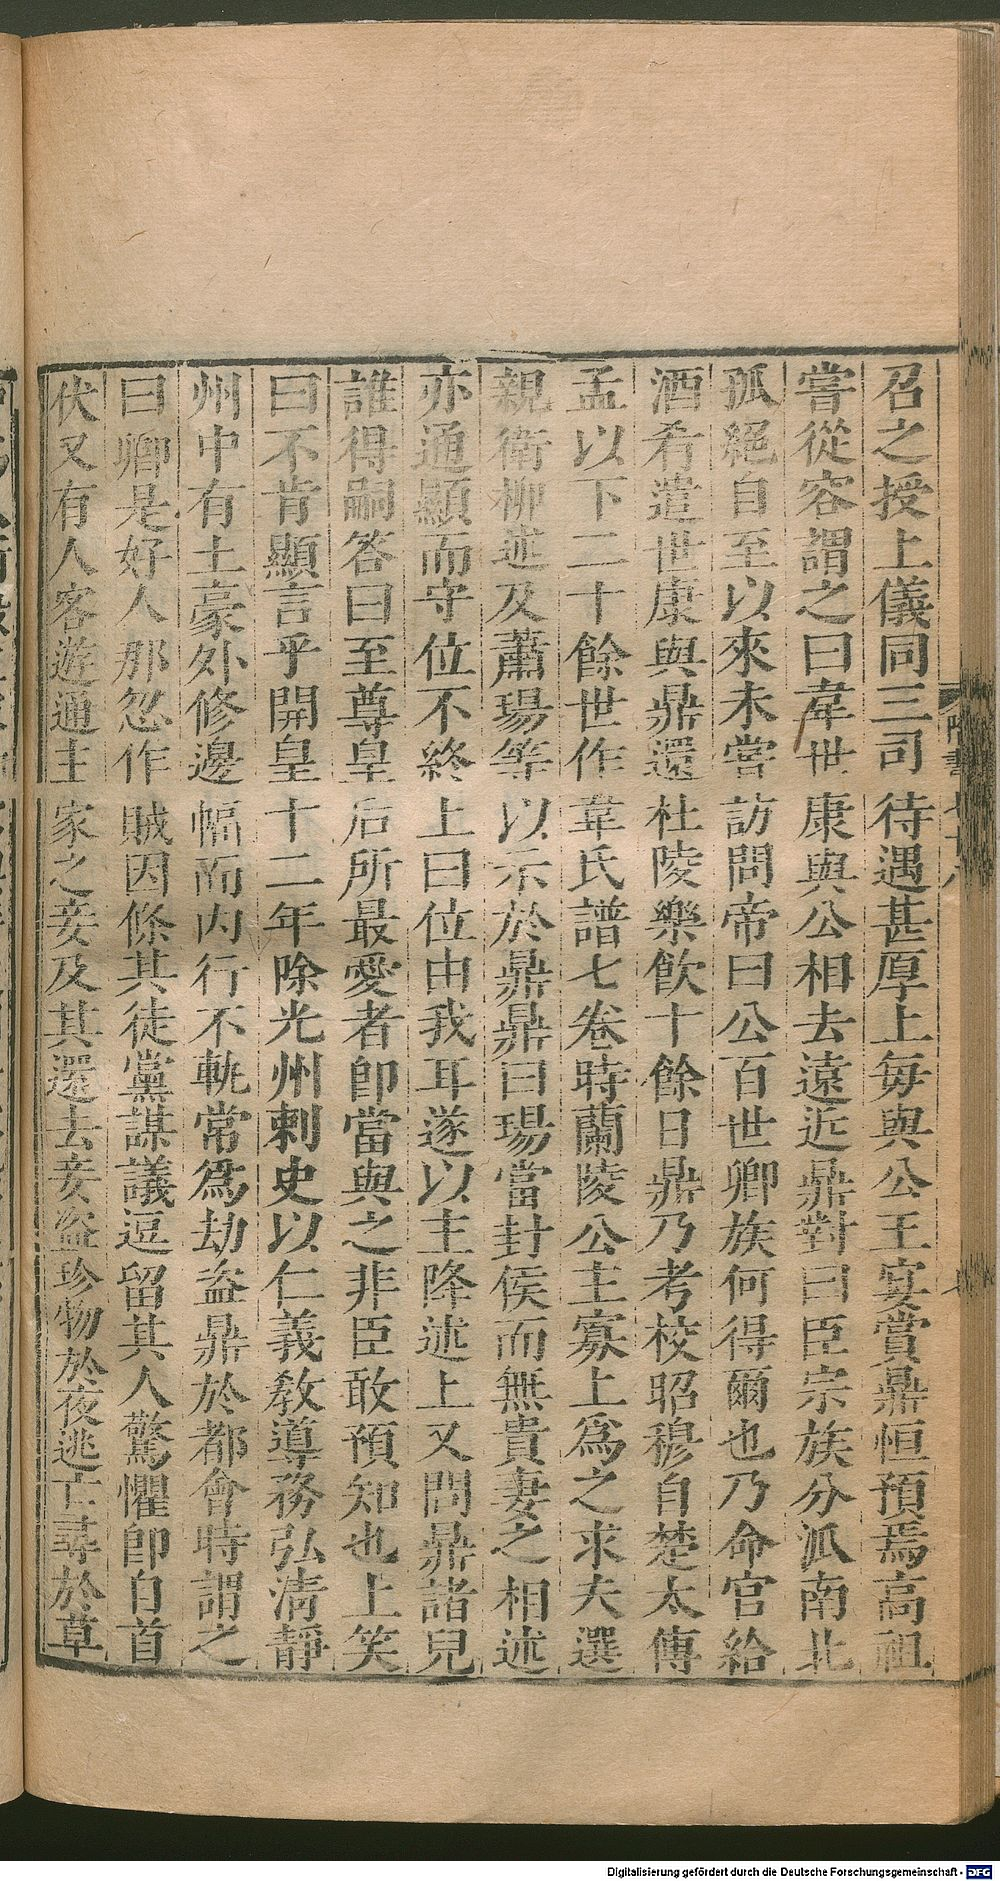 召之授上儀同三司待遇甚厚上每與公王宴賞鼎恒預焉高祖
嘗從容謂之曰韋世康與公相去遠近鼎對曰臣宗族分派南北
孤絕自至以來未嘗訪問帝曰公百世卿族何得爾也乃命官給
酒肴遣世康與鼎還杜陵樂飲十餘日鼎乃考校昭穆自楚太傅
孟以下二十餘世作韋氏譜七卷時蘭陵公主寡上爲之求夫選
親衛柳述及蕭瑒等以示於鼎鼎曰瑒當封侯而無貴妻之相述
亦通顯而守位不終上曰位由我耳遂以主降述上又問鼎諸兒
誰得嗣答曰至尊皇后所最愛者即當與之非臣敢預知也上笑
曰不肯顯言乎開皇十二年除光州刺史以仁義教導務弘淸靜
州中有土豪外修邊幅而内行不軌常爲劫盗鼎於都會時謂之
曰卿是好人那忽作賊因條其徒黨謀議逗留其人驚懼即自首
伏又有人客遊通主家之妾及其還去妾盗珍物於夜逃亡尋於草
隋書 七十八
Digitalisierung gefördert durch die Deutsche Forschungsgemeinschaft - DFG